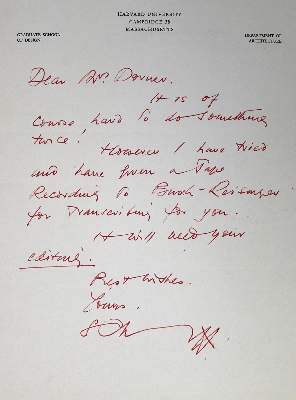 HARVARD UNIVERSITY
CAMBRIDGE 38
MASSACHUSETTS
GRADUATE SCHOOL
OF DESIGN
DEPARTMENT OF
ARCHITECTURE
Dear Mrs. Dorner.
It is of
course hard to do something
twice!
However I have tried
and have given a Tape
Recording to Busch-Reisinger
for Transcribing for you.
It will need your
editing.
Best wishes.
Yours.